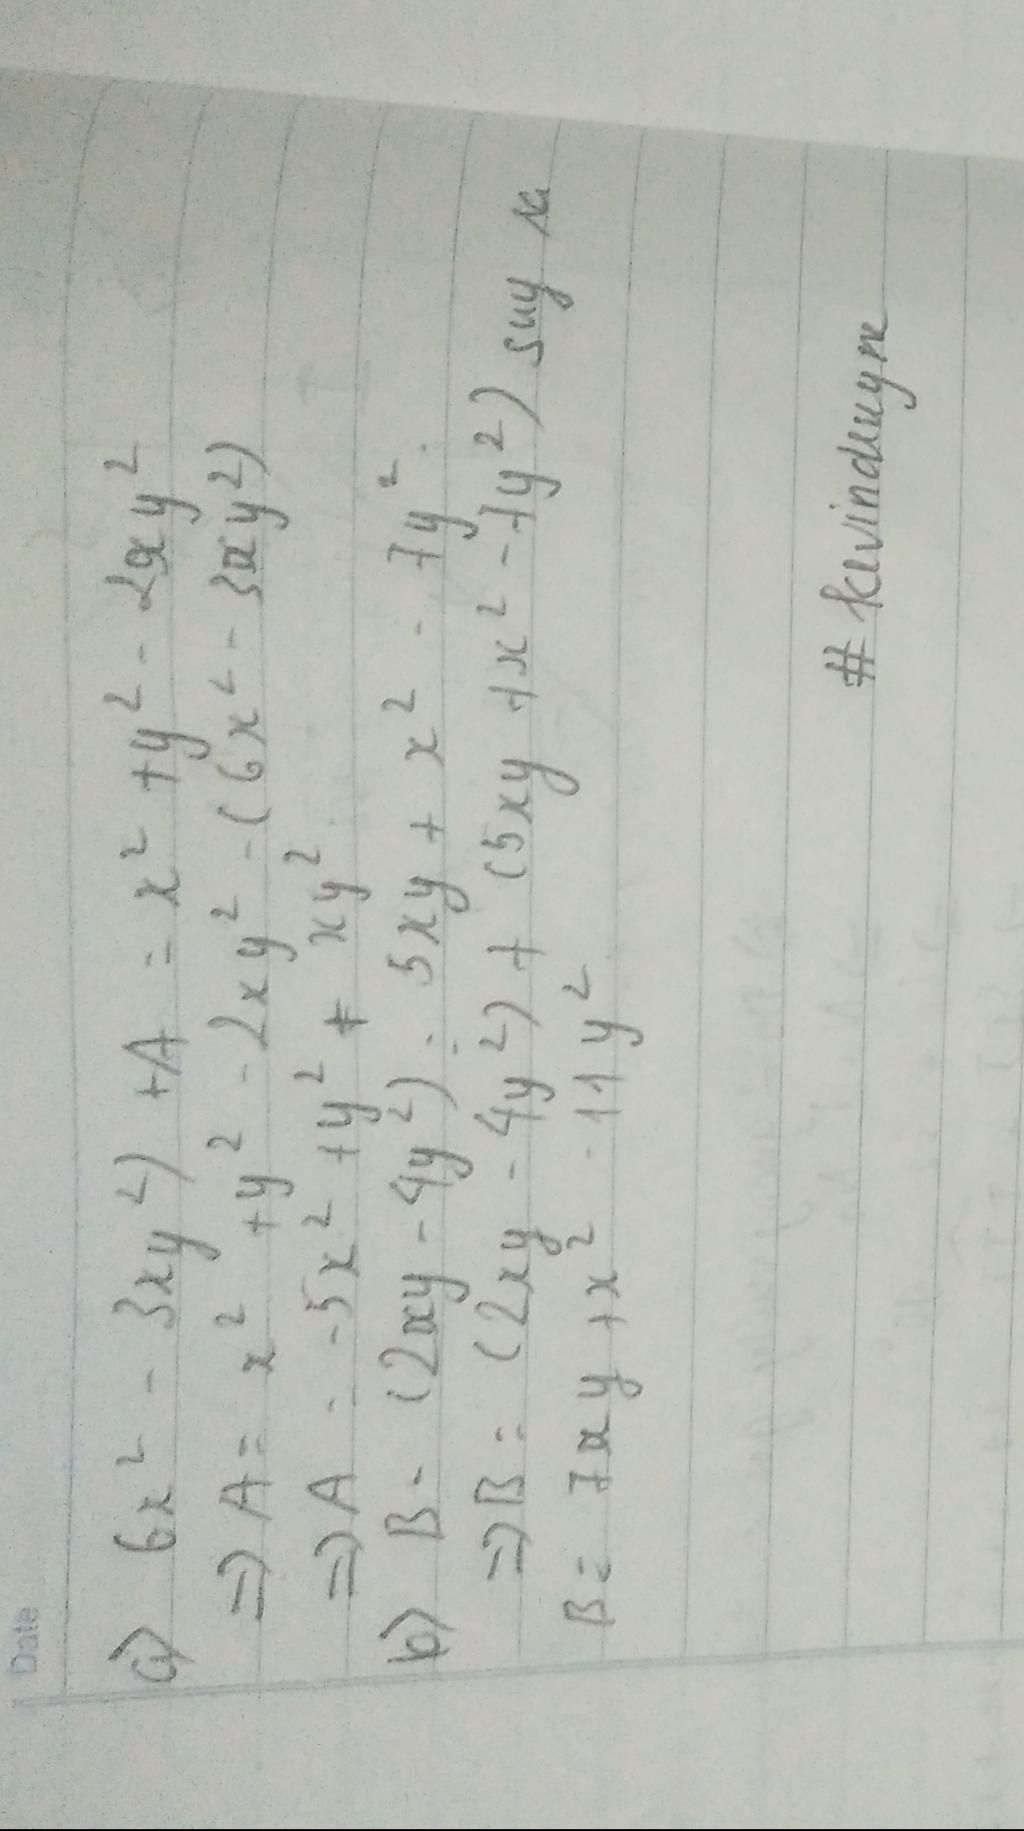 Date
a) 6x² - 3xy²) + A = x² + y² - 2xy²
=> A = x² + y² - 2xy² - (6x² - 3xy²)
=> A = -5x² + y² + xy²
b) B - (2xy - 4y²) = 5xy + x² - 7y².
=> B = (2xy - 4y²) + (5xy + x² - 7y²) suy ra
B = 7xy + x² - 11y²